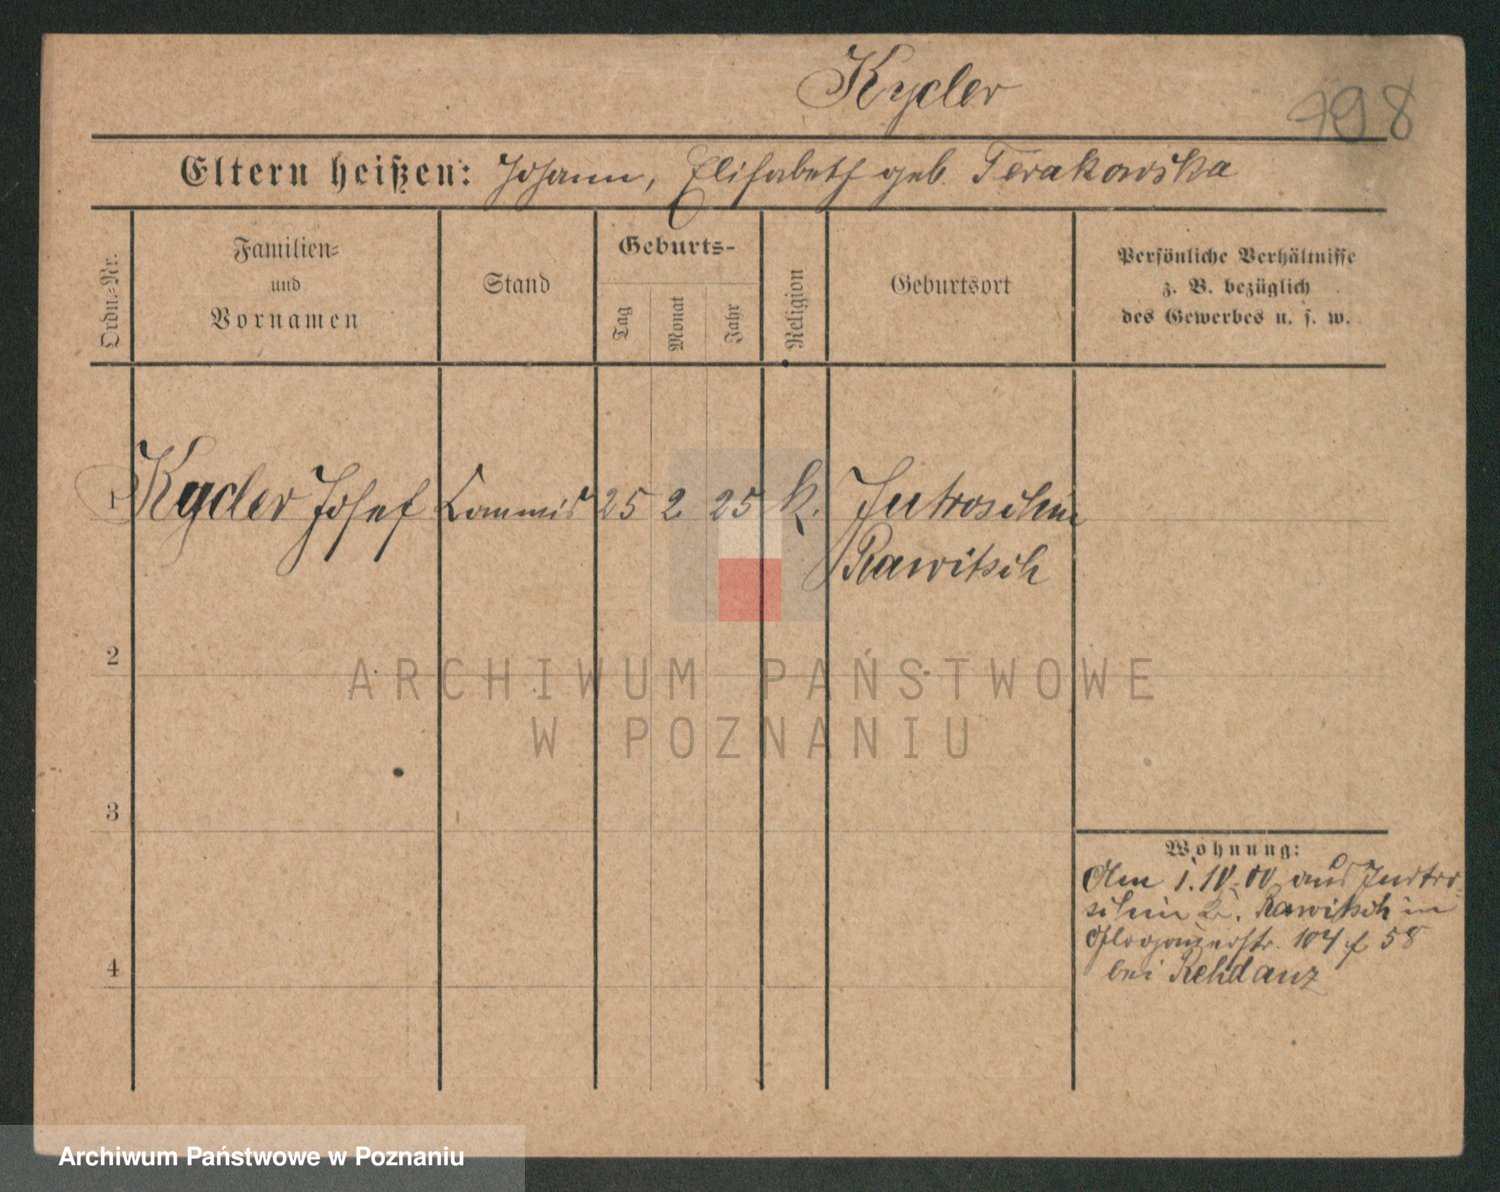 Kycler
498
Eltern heißen: Johann, Elisabeth geb. Terakowska
Ordn.-Nr.
Familien-
und
Vornamen
Stand
Geburts-
Tag
Monat
Jahr
Religion
Geburtsort
Persönliche Verhältnisse
z. B. bezüglich
des Gewerbes u. s. w.
1 Kycler Josef Commis 25 2 25 k. Jutroschin
Rawitsch
2
ARCHIWUM PAŃSTWOWE
W POZNANIU
3
Wohnung:
Am 1.10.00 aus Jutro-
schin Rawitsch in
Glogauerstr. 104 f 58
bei Rehdanz
4
Archiwum Państwowe w Poznaniu